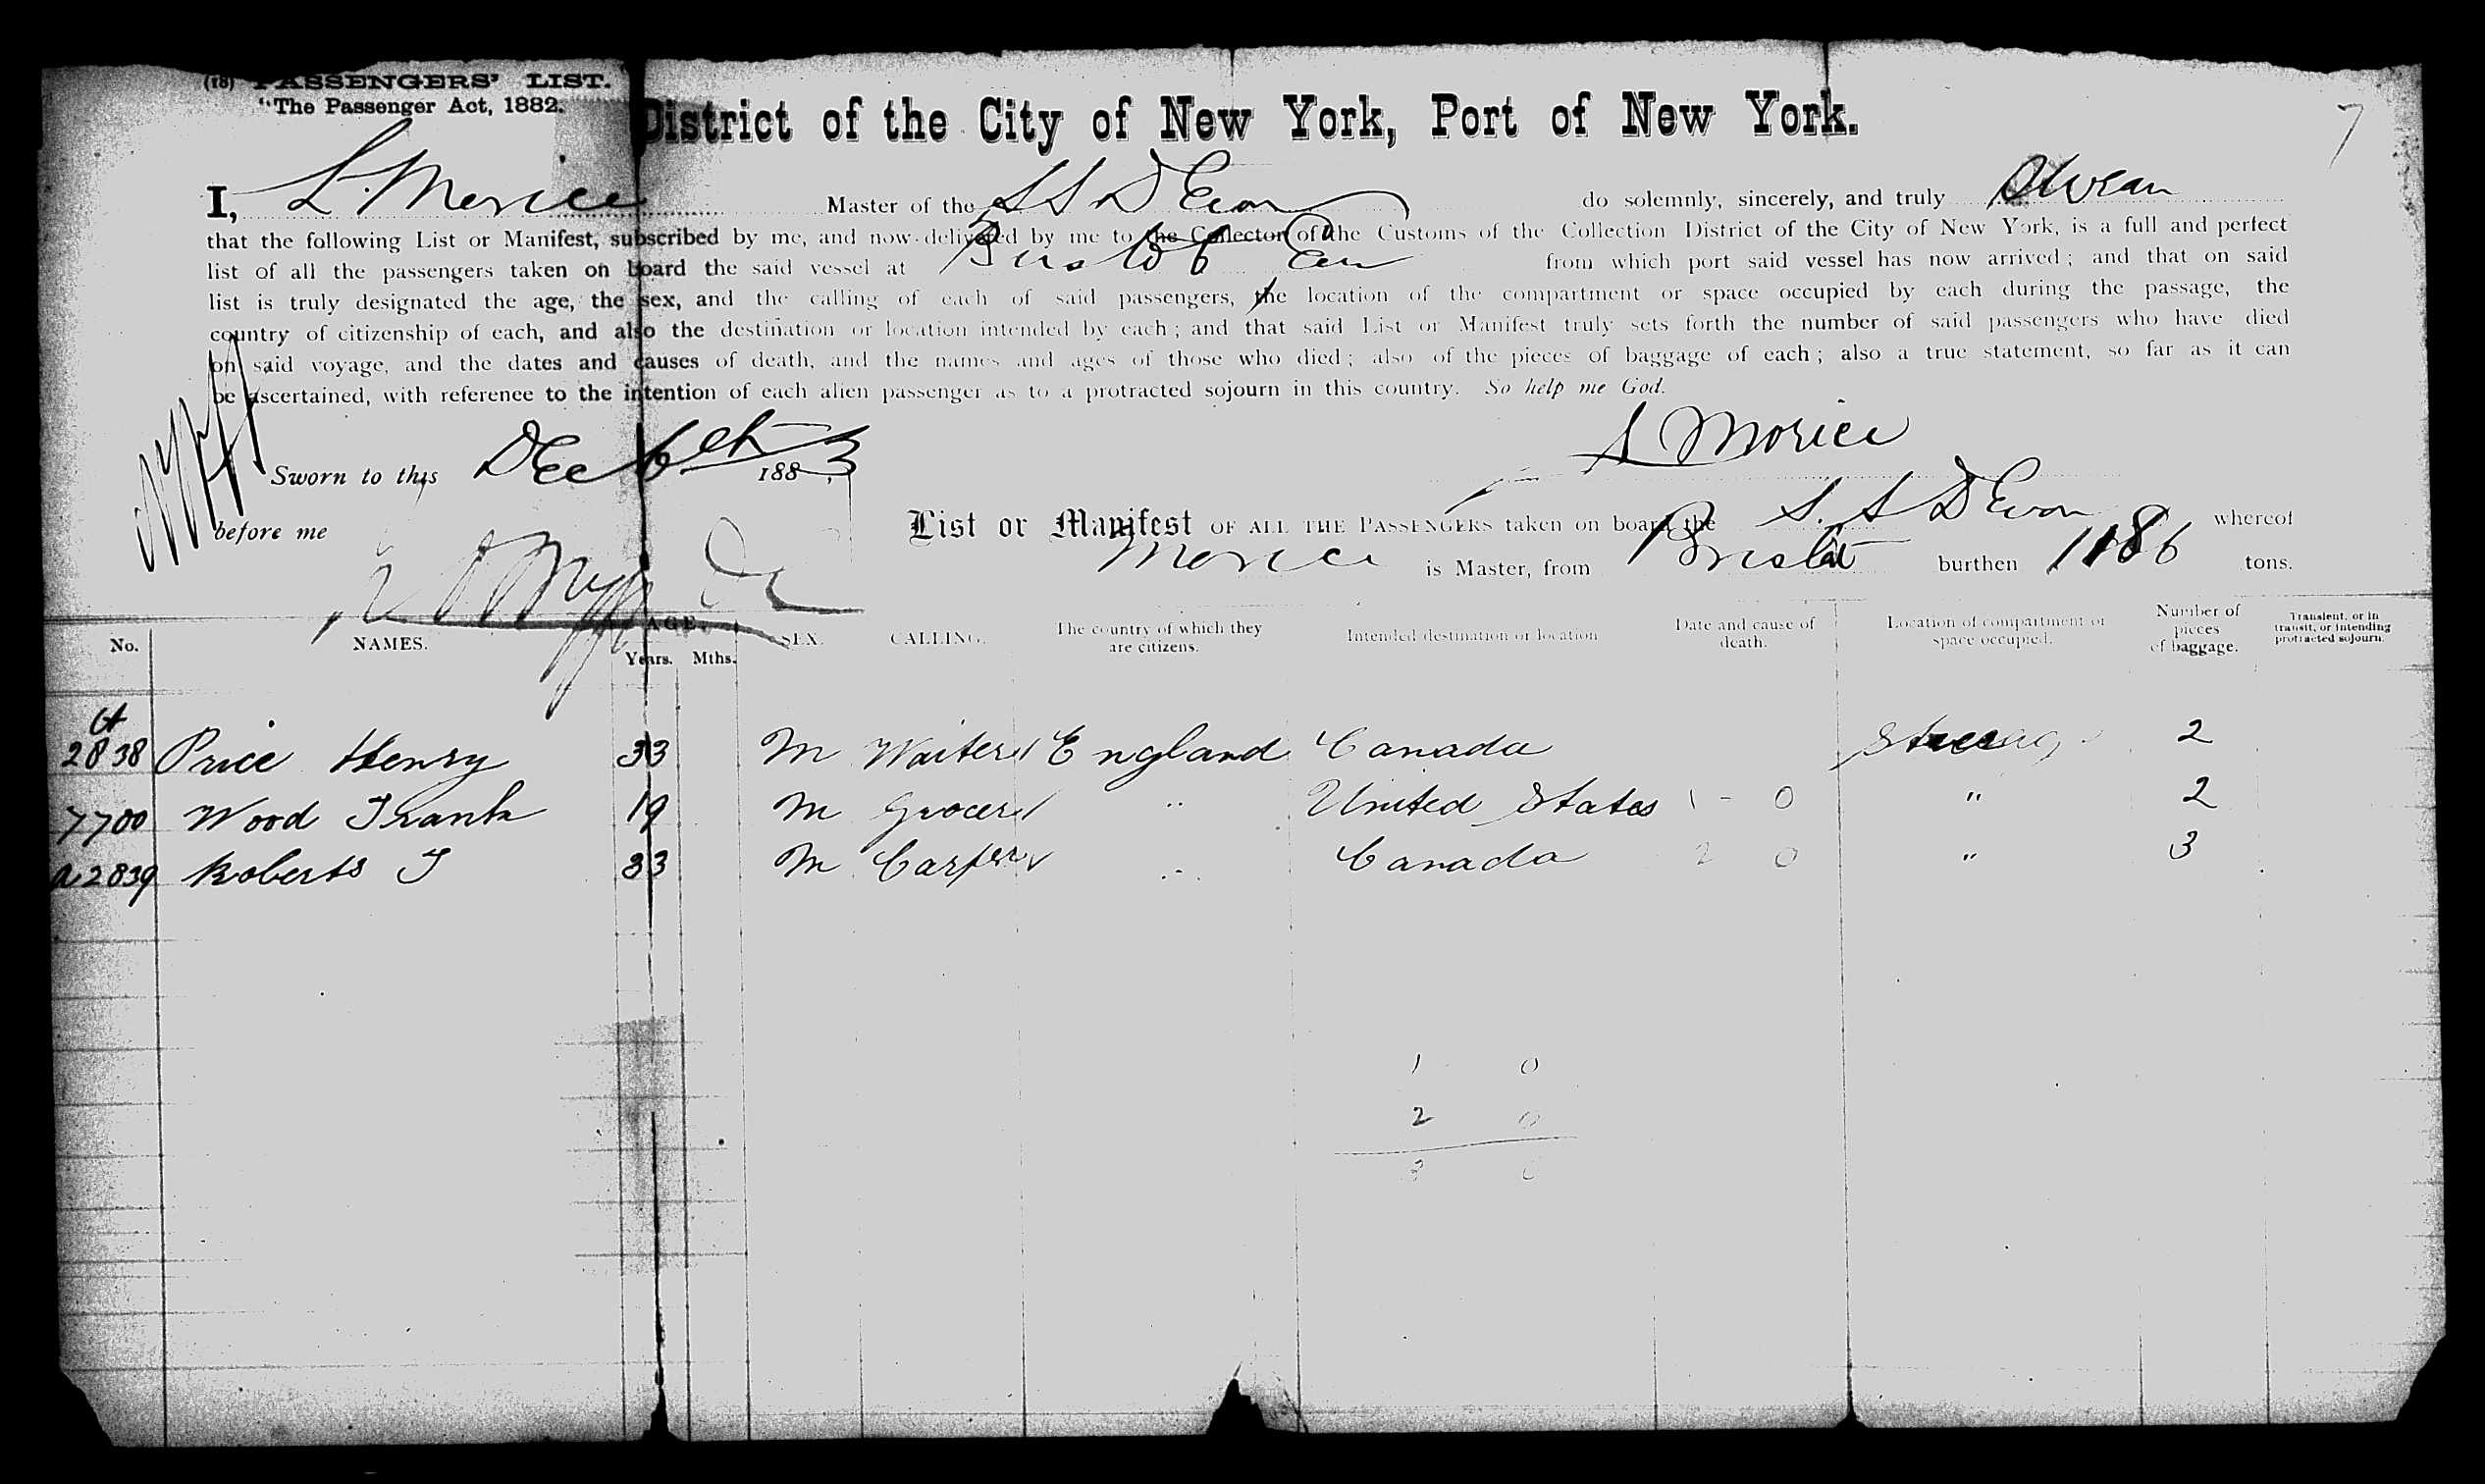 (18) PASSENGERS' LIST.
"The Passenger Act, 1882.
District of the City of New York, Port of New York.
7
I, S. Morice Master of the SS Devon do solemnly, sincerely, and truly Swear
that the following List or Manifest, subscribed by me, and now delivered by me to the Collector of the Customs of the Collection District of the City of New York, is a full and perfect
list of all the passengers taken on board the said vessel at Bristol Eng from which port said vessel has now arrived; and that on said
list is truly designated the age, the sex, and the calling of each of said passengers, the location of the compartment or space occupied by each during the passage, the
country of citizenship of each, and also the destination or location intended by each; and that said List or Manifest truly sets forth the number of said passengers who have died
on said voyage, and the dates and causes of death, and the names and ages of those who died; also of the pieces of baggage of each; also a true statement, so far as it can
be ascertained, with reference to the intention of each alien passenger as to a protracted sojourn in this country. So help me God.
S Morice
Sworn to this Dec 6th 1883
before me
List or Manifest OF ALL THE PASSENGERS taken on board the S. S Devon whereof
Morice is Master, from Bristol burthen 1186 tons.
No. NAMES. AGE. Years. Mths. SEX. CALLING. The country of which they are citizens. Intended destination or location Date and cause of death. Location of compartment or space occupied. Number of pieces of baggage. Transient, or in transit, or intending protracted sojourn.
2838 Price Henry 33 M Waiter England Canada Steerage 2
7700 Wood Frank 19 M Grocer " United States 1 - 0 " 2
2839 Roberts J 33 M Carpenr " Canada 2 0 " 3
1 0
2 0
3 0